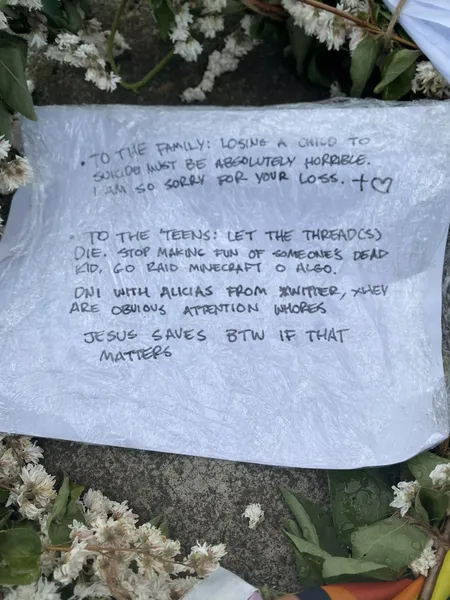 • TO THE FAMILY: LOSING A CHILD TO
SUICIDE MUST BE ABSOLUTELY HORRIBLE.
I AM SO SORRY FOR YOUR LOSS. + ♡
• TO THE TEENS: LET THE THREAD(S)
DIE. STOP MAKING FUN OF SOMEONES DEAD
KID, GO RAID MINECRAFT O ALGO.
DNI WITH ALICIAS FROM XWITTER, XHEY
ARE OBVIOUS ATTENTION WHORES
JESUS SAVES BTW IF THAT
MATTERS